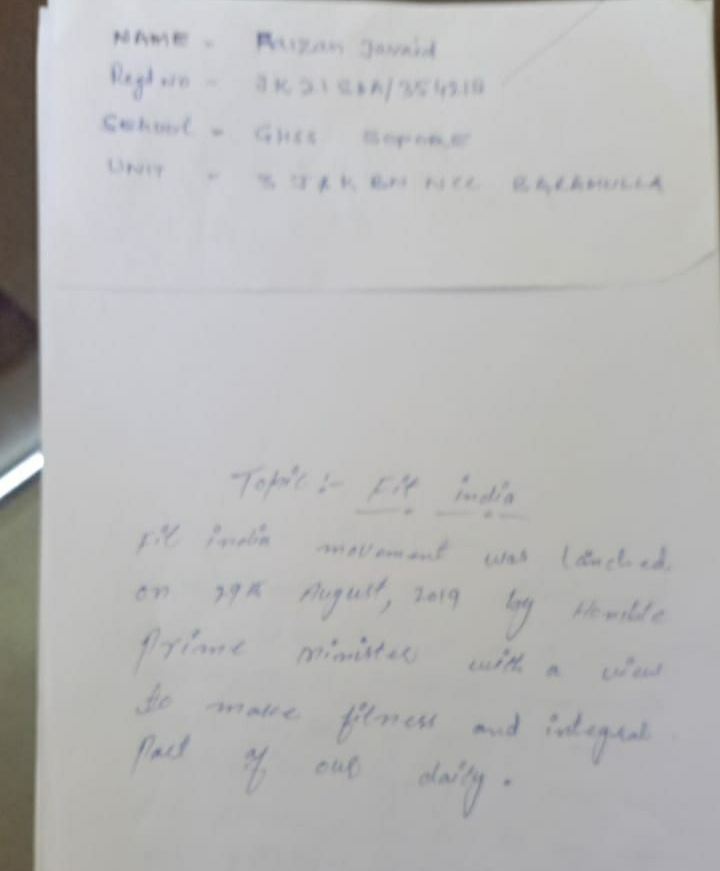 NAME - Faizan Javaid
Regd no - JK21SDA/354218
School - GHSS Sopore
UNIT - 3 J&K BN NCC BARAMULLA
Topic :- Fit india
Fit india movement was lanched
on 29th August, 2019 by Honible
Prime Minister with a view
to make fitness and integral
Part of our daily.